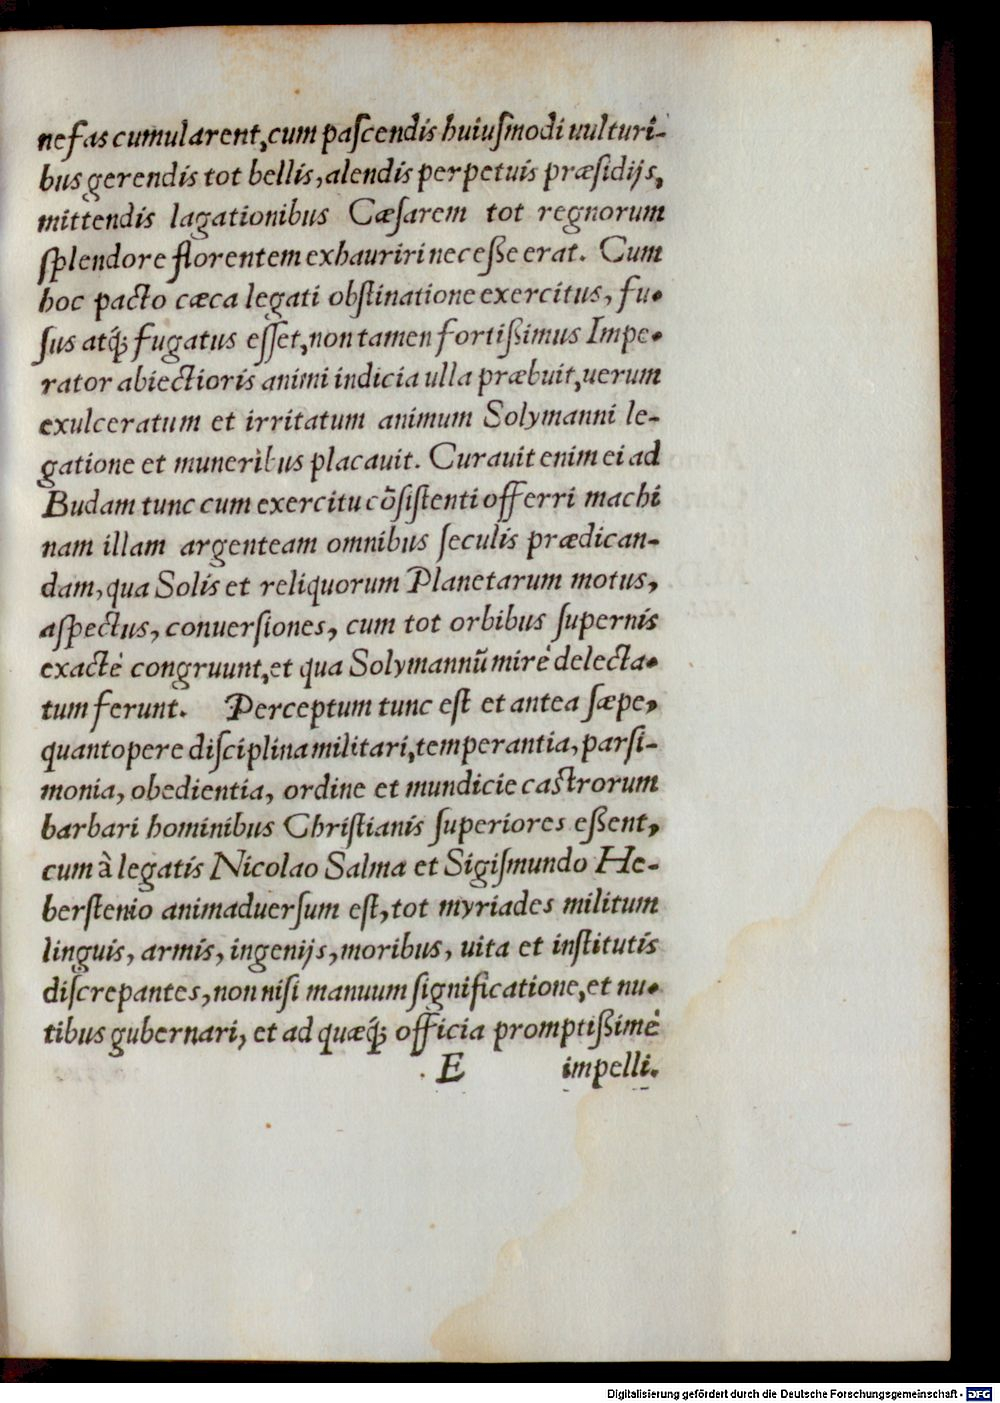 nefas cumularent, cum paſcendis huiuſmodi uulturi-
bus gerendis tot bellis, alendis perpetuis præſidijs,
mittendis lagationibus Cæſarem tot regnorum
ſplendore florentem exhauriri neceſſe erat. Cum
hoc pacto cæca legati obſtinatione exercitus, fu-
ſus atq́; fugatus eſſet, non tamen fortißimus Impe-
rator abiectioris animi indicia ulla præbuit, uerum
exulceratum et irritatum animum Solymanni le-
gatione et muneribus placauit. Curauit enim ei ad
Budam tunc cum exercitu cõſiſtenti offerri machi
nam illam argenteam omnibus ſeculis prædican-
dam, qua Solis et reliquorum Planetarum motus,
aſpectus, conuerſiones, cum tot orbibus ſupernis
exactè congruunt, et qua Solymannũ mirè delecta-
tum ferunt. Perceptum tunc eſt et antea ſæpe,
quantopere diſciplina militari, temperantia, parſi-
monia, obedientia, ordine et mundicie caſtrorum
barbari hominibus Chriſtianis ſuperiores eßent,
cum à legatis Nicolao Salma et Sigiſmundo He-
berſtenio animaduerſum eſt, tot myriades militum
linguis, armis, ingenijs, moribus, uita et inſtitutis
diſcrepantes, non niſi manuum ſignificatione, et nu-
tibus gubernari, et ad quæq́; officia promptißimè
E impelli.
Digitalisierung gefördert durch die Deutsche Forschungsgemeinschaft - DFG